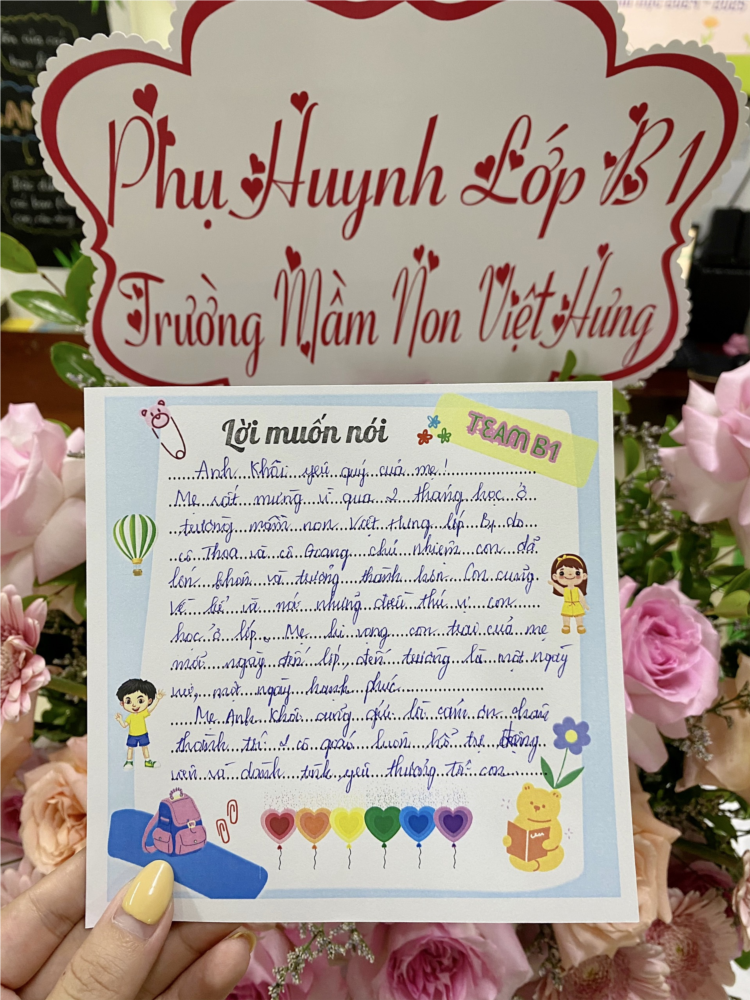 Phụ Huynh Lớp B1
Trường Mầm Non Việt Hưng
Lời muốn nói
TEAM B1
Anh Khôi yêu quý của mẹ!
Mẹ rất mừng vì qua 2 tháng học ở
trường mầm non Việt Hưng lớp B1 do
cô Thoa và cô Giang chủ nhiệm con đã
lớn khôn và trưởng thành hơn. Con cũng
về kể và nói những điều thú vị con
học ở lớp. Mẹ hi vọng con trai của mẹ
mỗi ngày đến lớp, đến trường là một ngày
vui, một ngày hạnh phúc.
Mẹ Anh Khôi cũng gửi lời cảm ơn chân
thành tới 2 cô giáo luôn hỗ trợ động
viên và dành tình yêu thương tới con